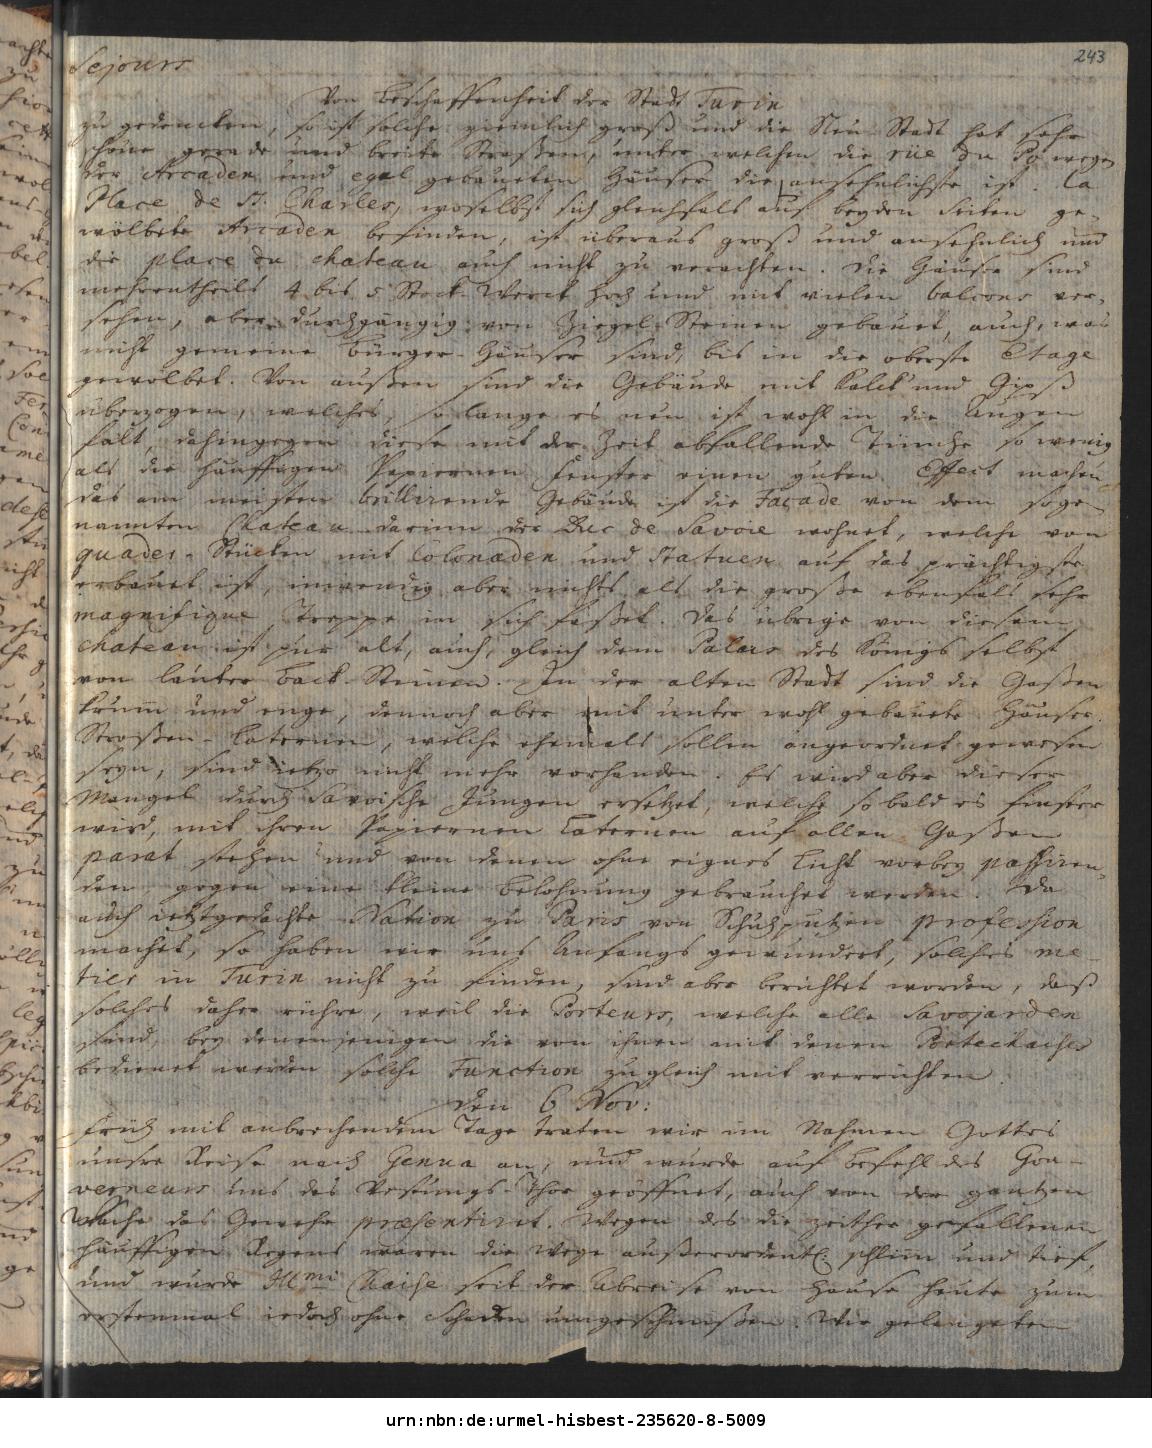 243
Sejours
Von Beschaffenheit der Stadt Turin
zu gedencken, so ist solche ziemlich groß und die Neu-Stadt hat sehr
schöne gerade und breite Straßen, unter welchen die rüe du Po wegen
der Arcaden und egal gebaueten Häuser die ansehnlichste ist. La
Place de St. Charles, woselbst sich gleichfals auf beyden Seiten ge-
wölbete Arcaden befinden, ist überaus groß und ansehnlich und
die place du chateau auch nicht zu verachten. Die Häuser sind
mehrentheils 4 bis 5 Stock-Werck hoch und mit vielen balcons ver-
sehen, aber durchgängig von Ziegel-Steinen gebauet, auch, was
nicht gemeine Bürger-Häuser sind, bis in die oberste Etage
gewölbet. Von außen sind die Gebäude mit Kalck und Gipß
überzogen, welches, so lange es neu ist wohl in die Augen
fält, dahingegen diese mit der Zeit abfallende Tünche so wenig
als die häuffigen Papiernen Fenster einen guten Effect machen.
Das am meisten brillirende Gebäude ist die Façade von dem soge-
nannten Chateau darinn der Duc de Savoie wohnet, welche von
quader-Stücken mit Colonaden und Statuen auf das prächtigste
erbauet ist, inwendig aber nichts als die große ebenfals sehr
magnifique Treppe in sich faßet. Das übrige von diesem
chateau ist pur alt, auch, gleich dem Palais des Königs selbst
von lauter Back-Steinen. In der alten Stadt sind die Gaßen
krum und enge, dennoch aber mit unter wohl gebauete Häuser.
Straßen-Laternen, welche ehemals sollen angeordnet gewesen
seyn, sind ietzo nicht mehr vorhanden. Es wird aber dieser
Mangel durch Savoische Jungen ersetzet, welche so bald es finster
wird, mit ihren Papiernen Laternen auf allen Gaßen
parat stehen und von denen ohne eignes Licht vorbey passiren-
den, gegen eine kleine Belohnung gebrauchet werden. Da
auch ietztgedachte Nation zu Paris von Schuhputzen profession
machet, so haben wir uns Anfangs gewundert, solches me-
tier in Turin nicht zu finden, sind aber berichtet worden, daß
solches daher rühre, weil die Porteurs, welche alle Savojarden
sind, bey denenjenigen die von ihnen mit denen Portechaises
bedienet werden solche Function zugleich mit verrichten.
Den 6 Nov:
Früh mit anbrechendem Tage traten wir im Nahmen Gottes
unsre Reise nach Genua an, und wurde auf Befehl des Gou-
verneurs uns das Vestungs-Thor geöffnet, auch von der gantzen
Wache das Gewehr præsentiret. Wegen des die zeither gefallenen
häuffigen Regens waren die Wege außerordentl. schlim und tief,
und wurde Illmi Chaise seit der Abreise von Hause heute zum
erstenmal iedoch ohne Schaden umgeschmißen. Wir gelangeten
urn:nbn:de:urmel-hisbest-235620-8-5009